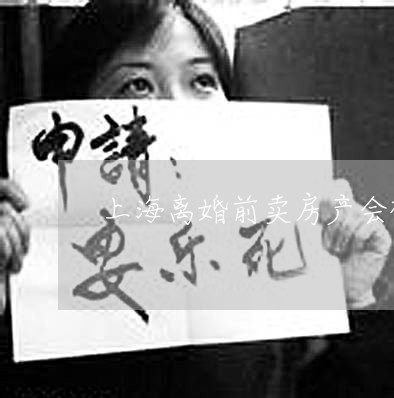 申請：
上海离婚前卖房产会
安乐死